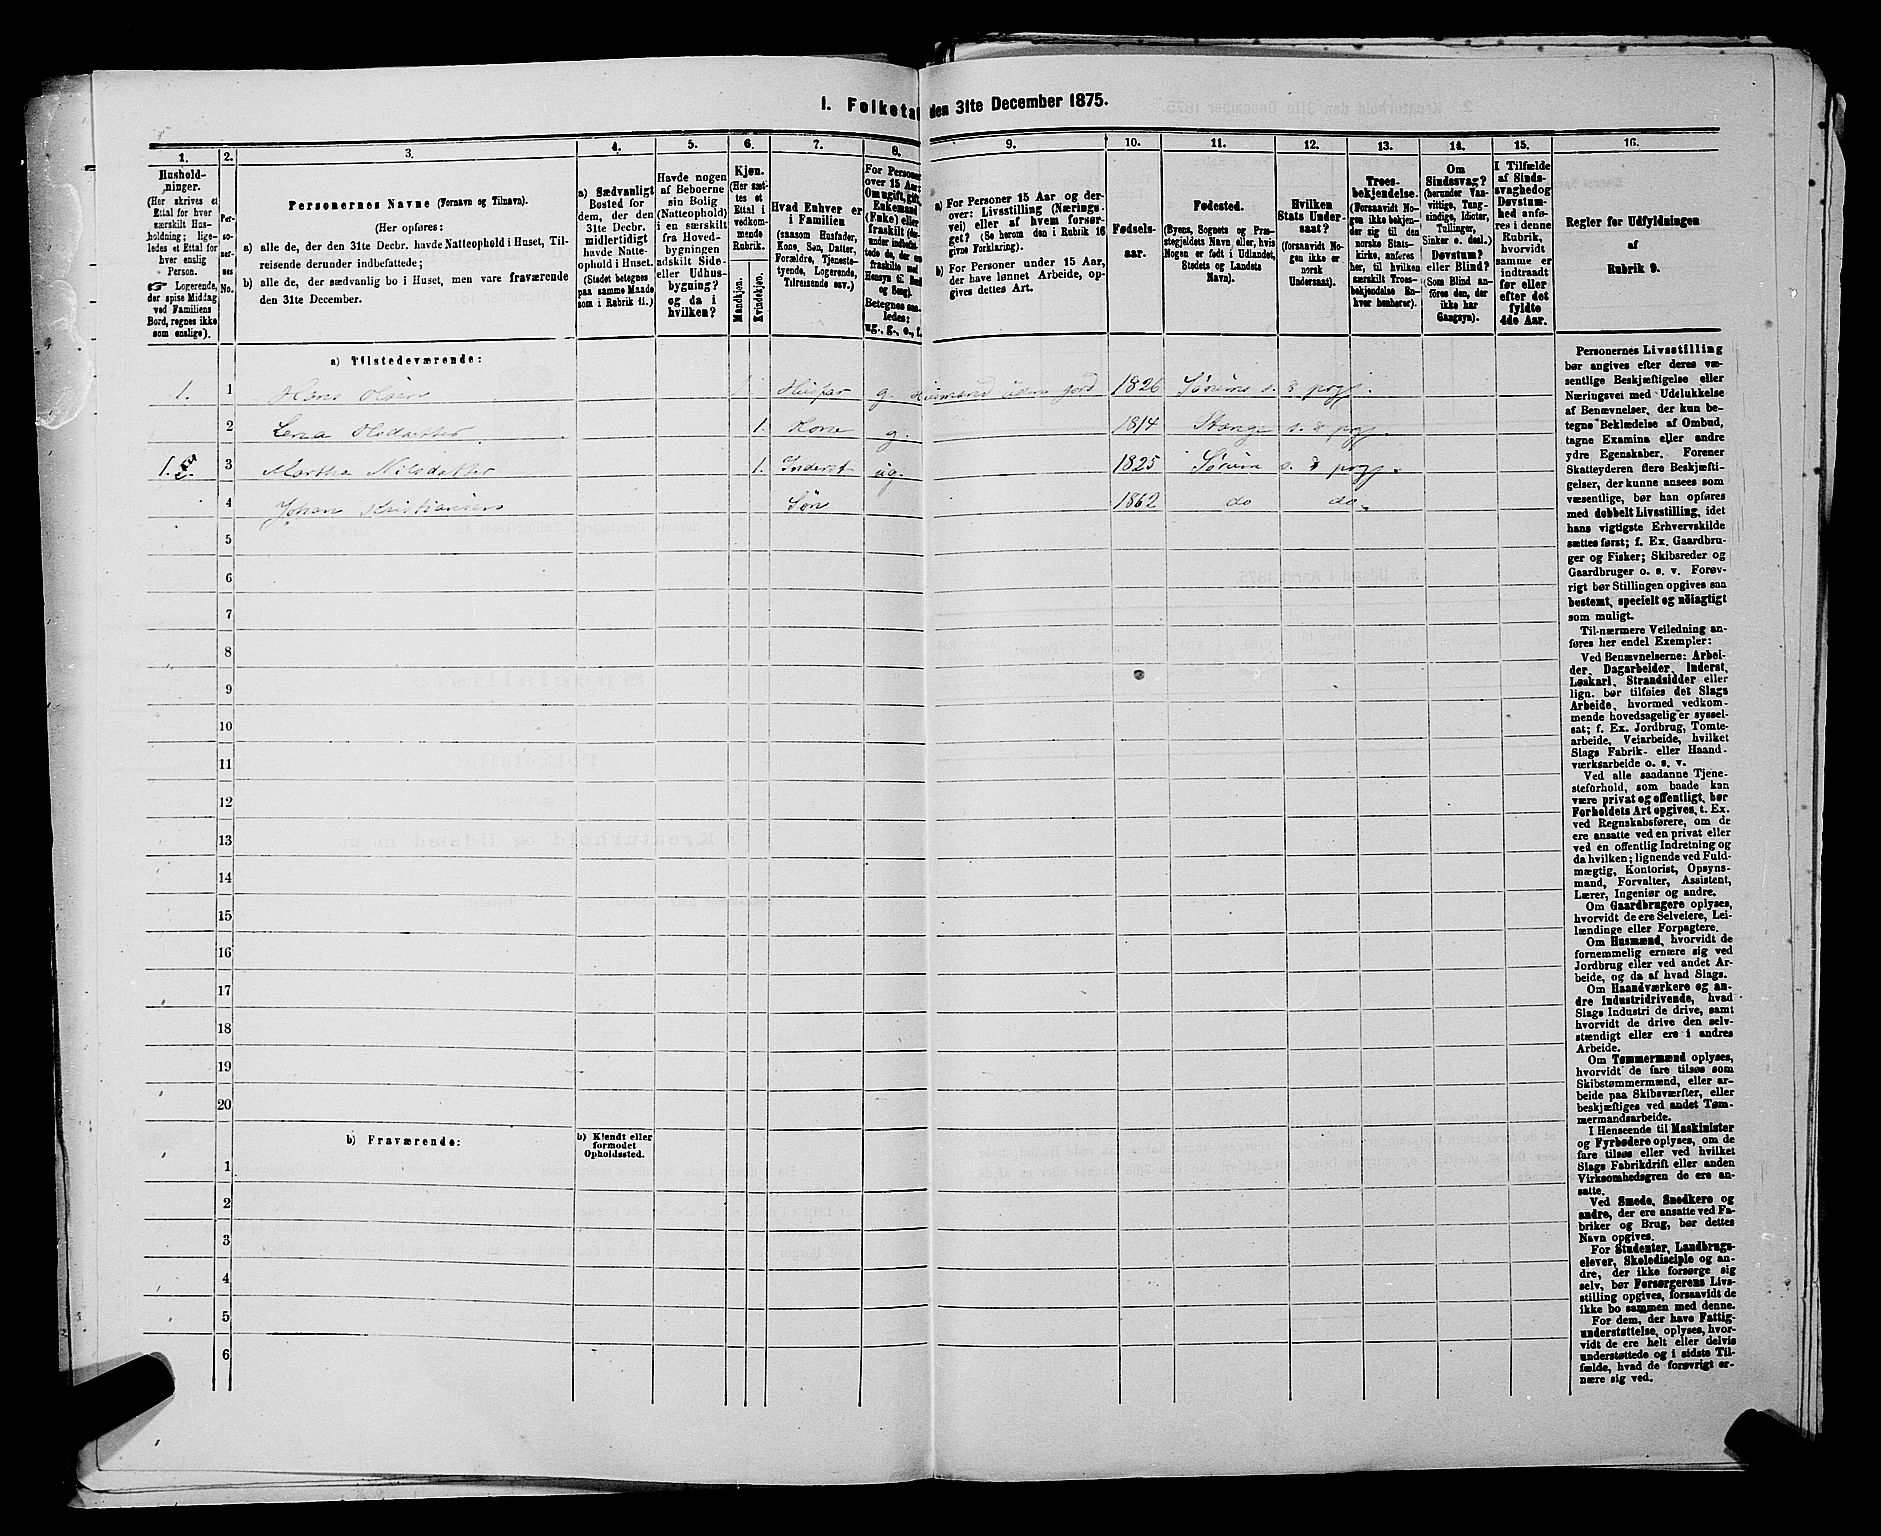 1. Folketæ
den 31te December 1875.
1.
2.
3.
4.
5.
6.
7.
8.
9.
10.
11.
12.
13.
14.
15.
16.
Hushold-
ninger.
(Her skrives et
Ettal for hver
særskilt Hus-
holdning; lige-
ledes et Ettal for
hver enslig
Person.
☞ Logerende,
der spise Middag
ved Familiens
Bord, regnes ikke
som enslige).
No.
Personernes Navne (Fornavn og Tilnavn).
(Her opføres:
a) alle de, der den 31te Decbr. havde Natteophold i Huset, Til-
reisende derunder indbefattede;
b) alle de, der sædvanlig bo i Huset, men vare fraværende
den 31te December.
a) Sædvanligt
Bosted for
dem, der den
31te Decbr.
midlertidigt
havde Natte-
ophold i Huset.
(Stedet betegnes
paa samme Maade
som i Rubrik 11.)
Havde nogen
af Beboerne
sin Bolig
(Natteophold)
i en særskilt
fra Hoved-
bygningen
adskilt Side-
eller Udhus-
bygning?
og da i
hvilken?
Kjøn.
(Her sæt-
tes et
Ettal i
vedkom-
mende
Rubrik.
Mandkjøn.
Kvindekjøn.
Hvad Enhver er
i Familien
(saasom Husfader,
Kone, Søn, Datter,
Forældre, Tjeneste-
tyende, Logerende,
Tilreisende osv.)
For Personer
over 15 Aar:
Om ugift, gift,
Enkemand
(Enke) eller
fraskilt
Betegnes saa-
ledes:
ug., g., e., f.
a) For Personer 15 Aar og der-
over: Livsstilling (Nærings-
vei) eller af hvem forsør-
get? (Se herom den i Rubrik 16
givne Forklaring).
b) For Personer under 15 Aar,
der have lønnet Arbeide, op-
gives dettes Art.
Fødsels-
aar.
Fødested.
(Byens, Sognets og Præ-
stegjeldets Navn, eller, hvis
Nogen er født i Udlandet,
Stedets og Landets
Navn).
Hvilken
Stats Under-
saat?
(forsaavidt No-
gen ikke er
norsk
Undersaat).
Troes-
bekjendelse.
(Forsaavidt No-
gen ikke bekjen-
der sig til den
norske Stats-
kirke, anføres
her, til hvilken
særskilt Troes-
bekjendelse En-
hver henhører).
Om
Sindssvag?
(herunder Van-
vittige, Tung-
sindige, Idioter,
Tullinger,
Sinker o. desl.)
Døvstum?
eller Blind?
(Som Blind an-
føres den, der
ikke har
Gangsyn).
I Tilfælde
af Sinds-
svaghed og
Døvstum-
hed anfø-
res i denne
Rubrik,
hvorvidt
samme er
indtraadt
før eller
efter det
fyldte
4de Aar.
Regler for Udfyldningen
af
Rubrik 9.
a) Tilstedeværende:
1. 1 Hans Olsen 1 Husfar g. Husmand uden jord 1826 Sørums s. & prgj.
2 Lena Olsdatter 1. Kone g. 1814 Stange s. & prgj.
1. 3 Marthe Nilsdatter 1. Inderst ug. 1825 Sørum s. & prgj.
4 Johan Kristiansen Søn 1862 do do.
5
6
7
8
9
10
11
12
13
14
15
16
17
18
19
20
b) Fraværende:
b) Kjendt eller
formodet
Opholdssted.
1
2
3
4
5
6
Personernes Livsstilling
bør angives efter deres væ-
sentlige Beskjæftigelse eller
Næringsvei med Udelukkelse
af Benævnelser, der kun be-
tegne Beklædelse af Ombud,
tagne Examina eller andre
ydre Egenskaber. Forener
Skatteyderen flere Beskjæfti-
gelser, der kunne ansees som
væsentlige, bør han opføres
med dobbelt Livsstilling, idet
hans vigtigste Erhvervskilde
sættes først; f. Ex. Gaardbru-
ger og Fisker; Skibsreder og
Gaardbruger o. s. v. Forøv-
rigt bør Stillingen opgives saa
bestemt, specielt og nöiagtigt
som muligt.
Til nærmere Veiledning an-
føres her endel Exempler:
Ved Benævnelserne: Arbei-
der, Dagarbeider, Inderst,
Løskarl, Strandsidder eller
lign. bør tilføies det Slags
Arbeide, hvormed vedkom-
mende hovedsagelig er syssel-
sat; f. Ex. Jordbrug, Tomte-
arbeide, Veiarbeide, hvilket
Slags Fabrik- eller Haand-
værksarbeide o. s. v.
Ved alle saadanne Tjene-
steforhold, som baade kan
være privat og offentligt, bør
Forholdets Art opgives, t. Ex.
ved Regnskabsførere, om de
ere ansatte ved en privat eller
ved en offentlig Indretning og
da hvilken; lignende ved Fuld-
mægtig, Kontorist, Opsyns-
mand, Forvalter, Assistent,
Lærer, Ingeniør og andre.
Om Gaardbrugere oplyses,
hvorvidt de ere Selveiere, Lei-
lændinge eller Forpagtere.
Om Husmænd, hvorvidt de
fornemmelig ernære sig ved
Jordbrug eller ved andet Ar-
beide, og da af hvad Slags.
Om Haandværkere og an-
dre industridrivende, hvad
Slags Industri de drive, samt
hvorvidt de drive den selv-
stændigt eller ere i andres
Arbeide.
Om Tømmermænd oplyses,
hvorvidt de fare tilsøs som
Skibstømmermænd, eller ar-
beide paa Skibsværfter, eller
beskjæftiges ved andet Tøm-
mermandsarbeide.
I Henseende til Maskinister
og Fyrbødere oplyses, om de
fare tilsøs eller ved hvilket
Slags Fabrikdrift eller anden
Virksomhedsgren de ere an-
satte.
Ved Smede, Snedkere og
andre, der ere ansatte ved Fa-
briker og Brug, bør dettes
Navn opgives.
For Studenter, Landbrugs-
elever, Skoledisciple og an-
dre, der ikke forsørge sig
selv, bør Forsørgerens Livs-
stilling opgives, forsaavidt de
ikke bo sammen med denne.
For dem, der have Fattig-
understøttelse, oplyses, hvor-
vidt de ere helt eller delvis
understøttede og i sidste Til-
fælde, hvad de forøvrigt er-
nære sig ved.